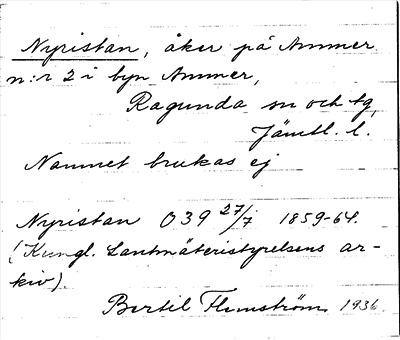 Nyristan, åker på Ammer
n:r 2 i byn Ammer,
Ragunda sn och tg,
Jämtl. l.
Namnet brukas ej
Nyristan O39 27/7 1859-64.
(Kungl. Lantmäteristyrelsens ar-
kiv).
Bertil Flemström 1936